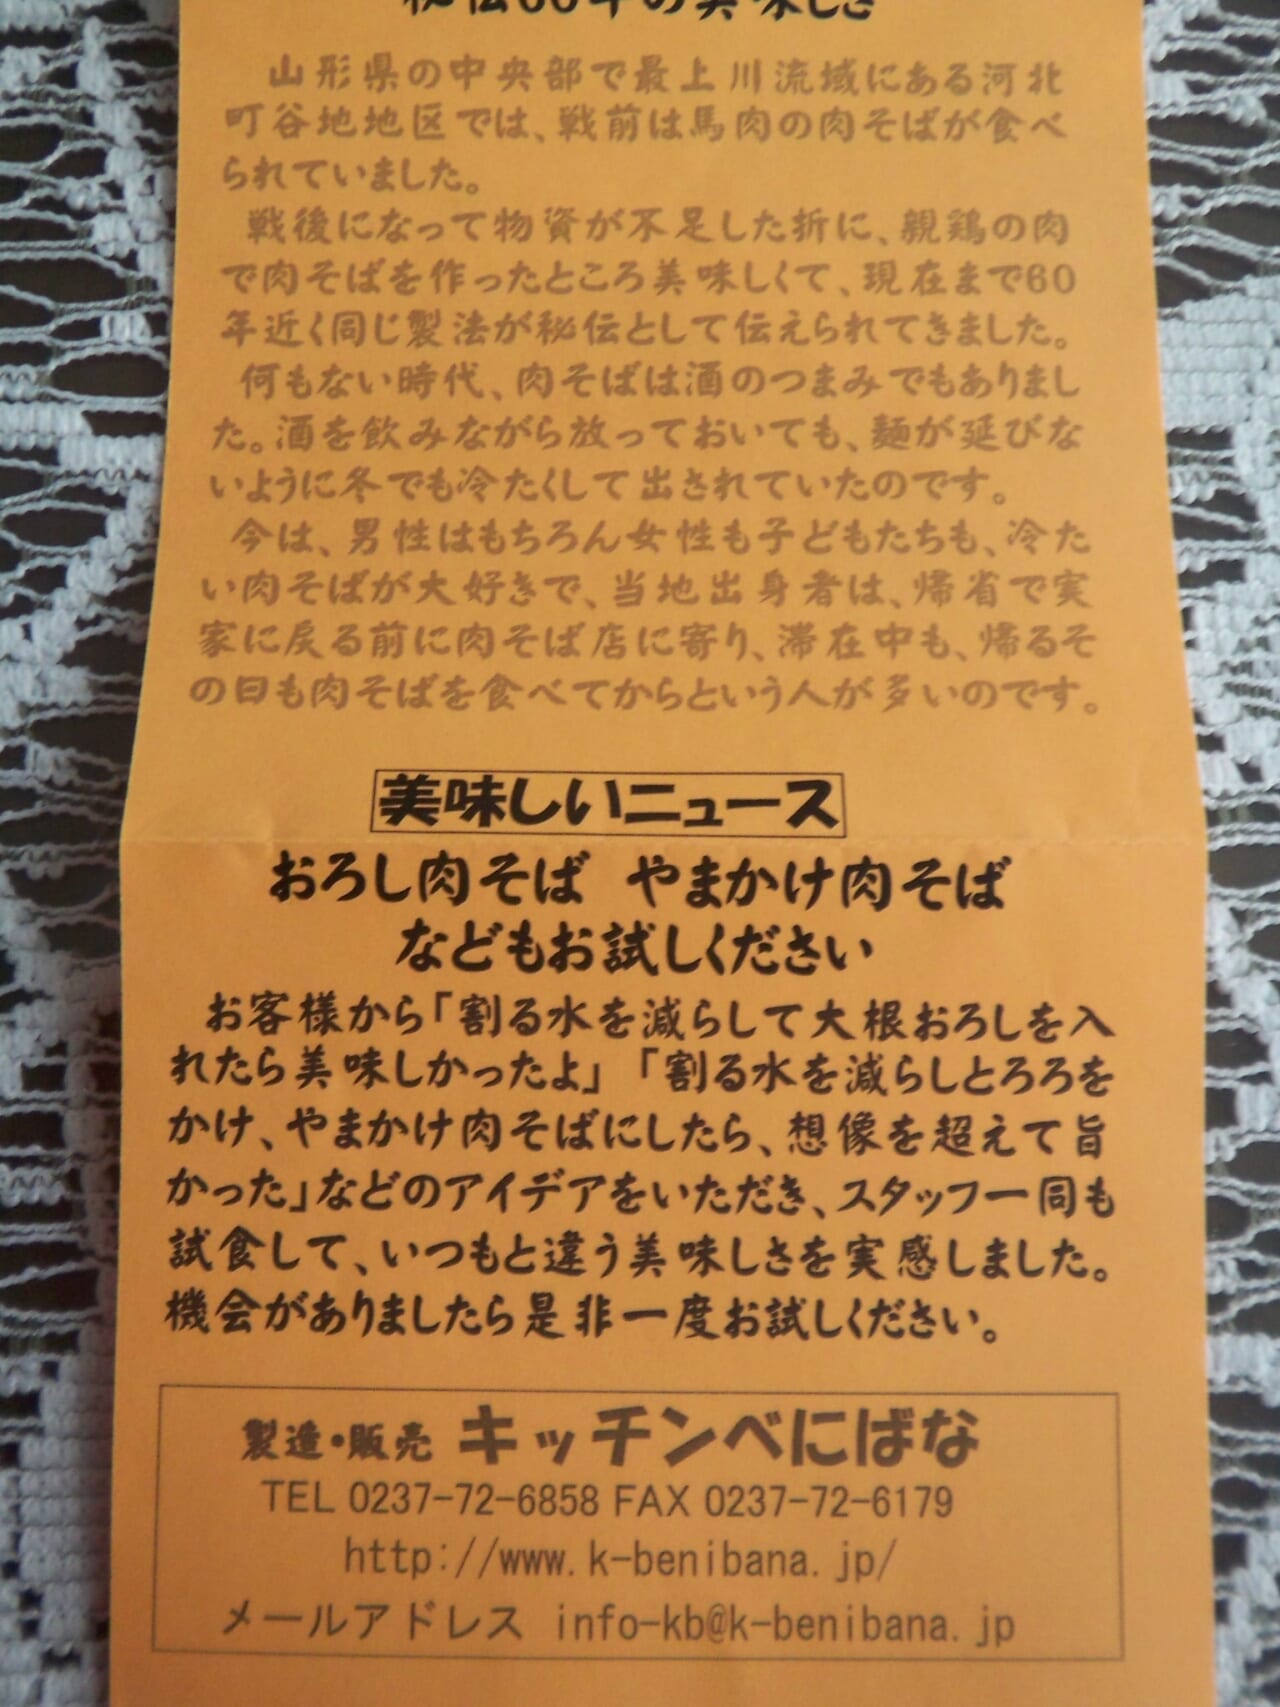 秘伝60年の美味しさ
山形県の中央部で最上川流域にある河北
町谷地地区では、戦前は馬肉の肉そばが食べ
られていました。
戦後になって物資が不足した折に、親鶏の肉
で肉そばを作ったところ美味しくて、現在まで60
年近く同じ製法が秘伝として伝えられてきました。
何もない時代、肉そばは酒のつまみでもありまし
た。酒を飲みながら放っておいても、麺が延びな
いように冬でも冷たくして出されていたのです。
今は、男性はもちろん女性も子どもたちも、冷た
い肉そばが大好きで、当地出身者は、帰省で実
家に戻る前に肉そば店に寄り、滞在中も、帰るそ
の日も肉そばを食べてからという人が多いのです。
美味しいニュース
おろし肉そば やまかけ肉そば
などもお試しください
お客様から「割る水を減らして大根おろしを入
れたら美味しかったよ」「割る水を減らしとろろを
かけ、やまかけ肉そばにしたら、想像を超えて旨
かった」などのアイデアをいただき、スタッフ一同も
試食して、いつもと違う美味しさを実感しました。
機会がありましたら是非一度お試しください。
製造・販売 キッチンべにばな
TEL 0237-72-6858 FAX 0237-72-6179
http://www.k-benibana.jp/
メールアドレス info-kb@k-benibana.jp